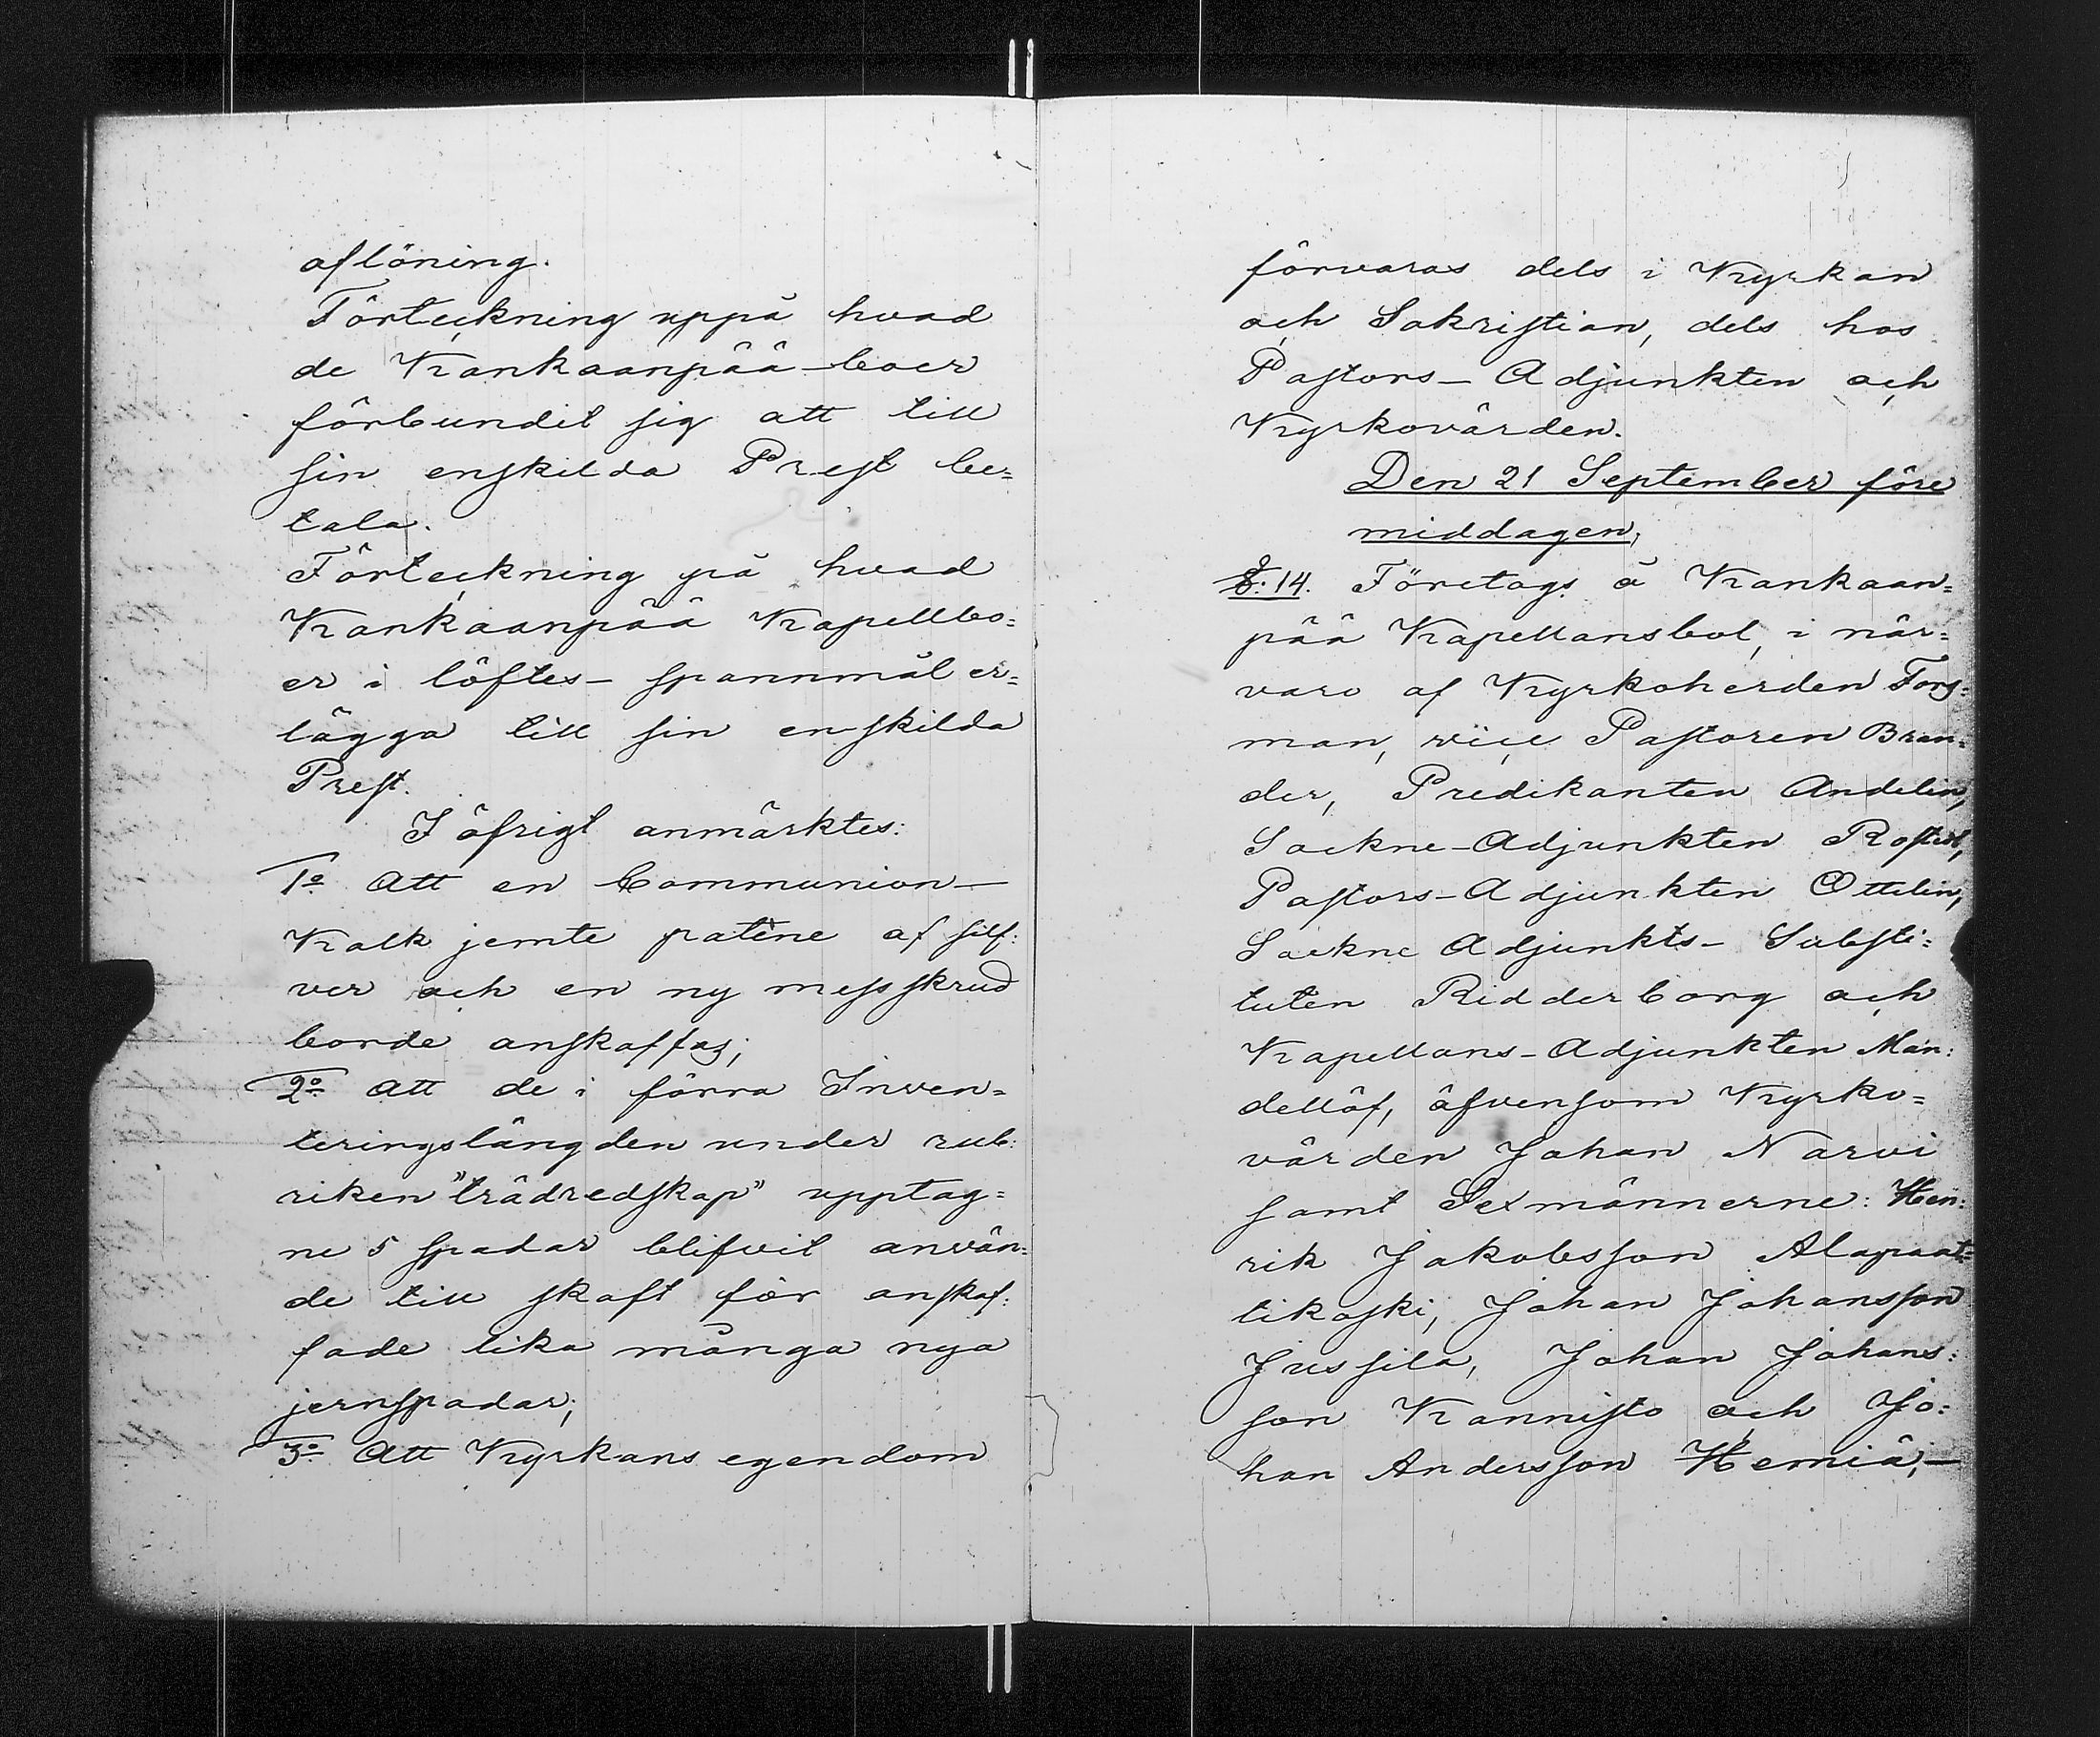 aflöning.
Förteckning uppå hvad
de Kankaanpää-boer
förbundit sig att till
sin enskilda Prest be=
tala.
Förteckning på hvad
Kankaanpää Kapellbo=
er i löftes- spannmål er=
lägga till sin enskilda
Prest.
I öfrigt anmärktes:
1o Att en Communion-
Kalk jemte patène af silf:
ver och en ny messskrud
borde anskaffas;
2o Att de i förra Inven=
teringslängden under rub:
riken "trädredskap" upptag=
ne 5 spadar blifvit använ=
de till skaft för anskaf:
fade lika många nya
jernspadar;
3o Att Kyrkans egendom
förvaras dels i Kyrkan
och Sakristian, dels hos
Pastors- Adjunkten och
Kyrkovärden.
Den 21 September före
middagen,
§: 14. Företogs å Kankaan=
pää Kapellansbol, i när=
varo af Kyrkoherden Fors=
man, vice Pastoren Bran=
der, Predikanten Andelin,
Sockne-Adjunkten Rostedt,
Pastors-Adjunkten Ottelin,
Sockne Adjunkts- Substi=
tuten Ridderborg och
Kapellans-Adjunkten Man:
dellöf, äfvensom Kyrko=
värden Johan Narvi
samt Sexmännerne: Hen:
rik Jakobsson Alapaat=
tikoski, Johan Johansson
Jussila, Johan Johans:
son Kannisto och Jo:
han Andersson Hemiä,-